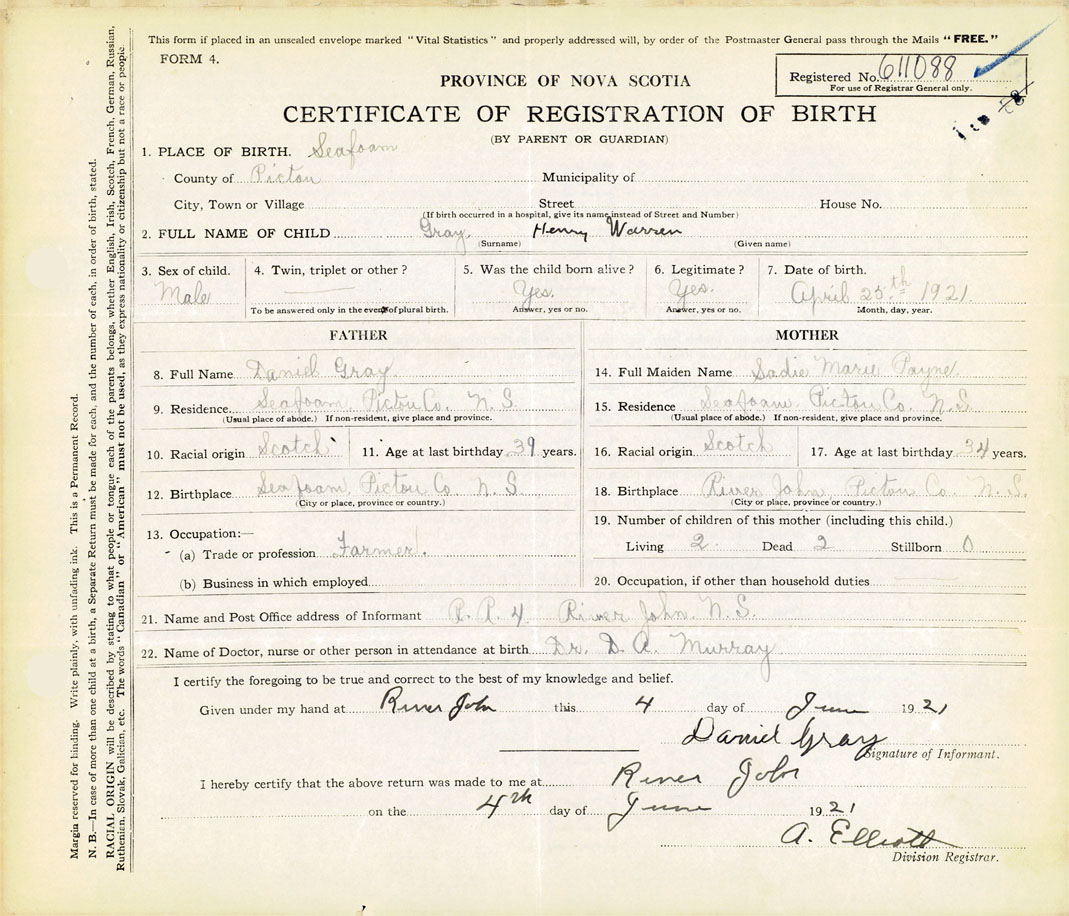 This form if placed in an unsealed envelope marked "Vital Statistics" and properly addressed will, by order of the Postmaster General pass through the Mails "FREE."
FORM 4.
Registered No. 611088
For use of Registrar General only.
PROVINCE OF NOVA SCOTIA
CERTIFICATE OF REGISTRATION OF BIRTH
(BY PARENT OR GUARDIAN)
1. PLACE OF BIRTH. Seafoam
County of Pictou Municipality of
City, Town or Village Street House No.
(If birth occurred in a hospital, give its name instead of Street and Number)
2. FULL NAME OF CHILD Gray. Henry Warren
(Surname) (Given name)
3. Sex of child. 4. Twin, triplet or other? 5. Was the child born alive? 6. Legitimate? 7. Date of birth.
Male Yes. Yes. April 25th 1921
To be answered only in the event of plural birth. Answer, yes or no. Answer, yes or no. Month, day, year.
FATHER
8. Full Name Daniel Gray
9. Residence Seafoam, Pictou Co. N.S.
(Usual place of abode.) If non-resident, give place and province.
10. Racial origin Scotch 11. Age at last birthday 39 years.
12. Birthplace Seafoam, Pictou Co. N.S.
(City or place, province or country.)
13. Occupation:—
(a) Trade or profession Farmer.
(b) Business in which employed
MOTHER
14. Full Maiden Name Sadie Marie Payne
15. Residence Seafoam, Pictou Co. N.S.
(Usual place of abode.) If non-resident, give place and province.
16. Racial origin Scotch 17. Age at last birthday 34 years.
18. Birthplace River John Pictou Co N.S.
(City or place, province or country.)
19. Number of children of this mother (including this child.)
Living 2 Dead 2 Stillborn 0
20. Occupation, if other than household duties
21. Name and Post Office address of Informant R.R. 4 River John. N.S.
22. Name of Doctor, nurse or other person in attendance at birth Dr. D. A. Murray
I certify the foregoing to be true and correct to the best of my knowledge and belief.
Given under my hand at River John this 4 day of June 1921
Daniel Gray
Signature of Informant.
I hereby certify that the above return was made to me at River John
on the 4th day of June 1921
A. Elliott
Division Registrar.
Margin reserved for binding. Write plainly, with unfading ink. This is a Permanent Record.
N. B.—In case of more than one child at a birth, a Separate Return must be made for each, and the number of each, in order of birth, stated.
RACIAL ORIGIN will be described by stating to what people or tongue each of the parents belongs, whether English, Irish, Scotch, French, German, Russian,
Ruthenian, Slovak, Galician, etc. The words "Canadian" or "American" must not be used, as they express nationality or citizenship but not a race or people.